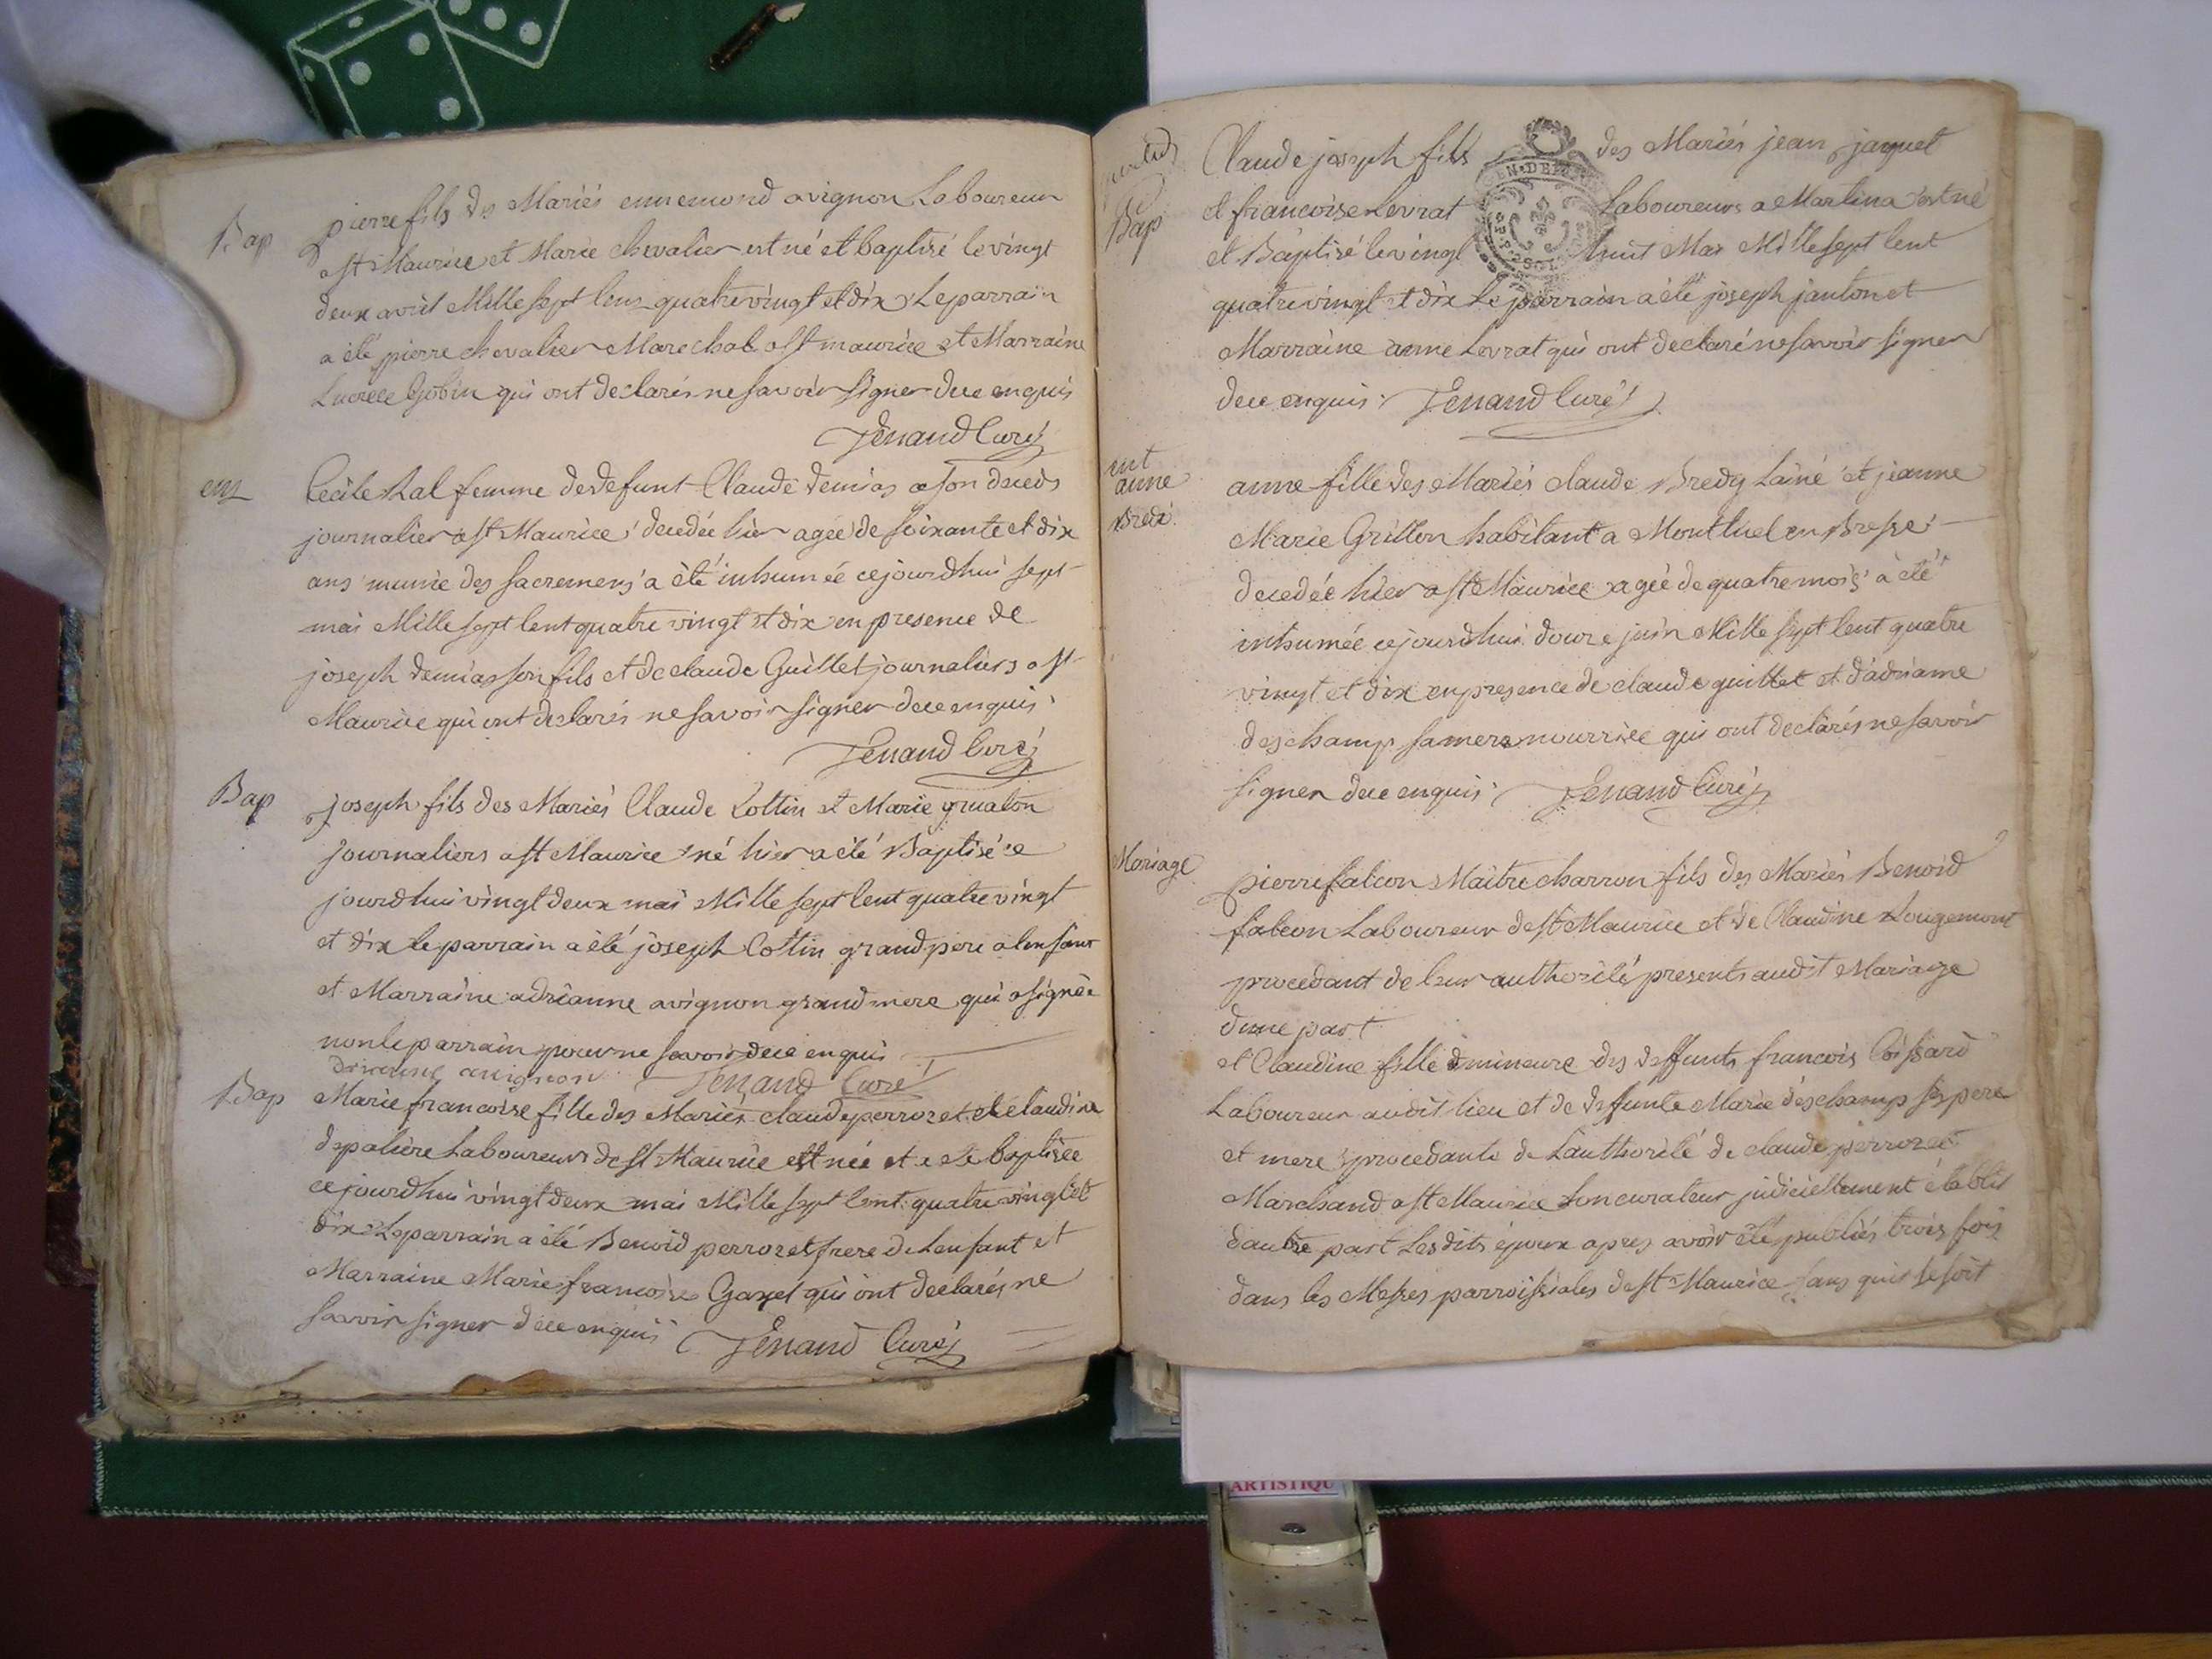 Bap
pierre fils des Mariés ennemond avignon Laboureur
a st Maurice et Marie chevalier est né et baptisé le vingt
deux avril Mille sept Cens quatre vingt et dix Le parrain
a été pierre chevalier Marechal a st maurice et Marraine
Lucrece Gobin qui ont declarés ne savoir signer de ce enquis
Tenand Curé
ent
Cecile femme de defunt Claude demias a son deceds
journalier a st Maurice decedée hier agée de soixante et dix
ans munie des sacremens a été inhumée cejourdhui sept
mai Mille sept Cent quatre vingt et dix en presence de
joseph demias son fils et de claude Guillet journaliers a st
Maurice qui ont declarés ne savoir signer de ce enquis
Tenand Curé
Bap
joseph fils des Mariés Claude Cottin et Marie gruaton
journaliers a st Maurice né hier a été Baptisé ce
jourdhui vingt deux mai Mille sept Cent quatre vingt
et dix le parrain a été joseph Cottin grand pere a lenfant
et Marraine adrianne avignon grand mere qui a signée
non le parrain pour ne savoir de ce enquis
avignon Tenand Curé
Bap
Marie francoise fille des Mariés claude perrozet et claudine
depaliere Laboureurs de st Maurice est née et a été baptisée
cejourdhui vingt deux mai Mille sept Cent quatre vingt et
dix Le parrain a été Benoid perrozet frere de Lenfant et
Marraine Marie francoise Gayet qui ont declarés ne
savoir signer de ce enquis Tenand Curé
Bap
Claude joseph fils des Mariés jean jaquet
et francoise Levrat Laboureurs a Martina est né
et Baptisé le vingt huit Mai Mille sept Cent
quatre vingt et dix Le parrain a été joseph janton et
Marraine anne Levrat qui ont declaré ne savoir signer
de ce enquis Tenand Curé
GEN. DE
ent
anne
Bredy
anne fille des Mariés claude Bredy Lainé et jeanne
Marie Grillon habitant a Montluel en Bresse
decedée hier a st Maurice agée de quatre mois a été
inhumée cejourdhui douze juin Mille sept Cent quatre
vingt et dix en presence de claude guillet et dadrianne
deschamp sa mere nourrice qui ont declarés ne savoir
signer de ce enquis Tenand Curé
Mariage
pierre falcon Maitre charron fils des Mariés Benoid
falcon Laboureur de st Maurice et de Claudine Rougemont
procedant de leur authorité presents audit Mariage
dune part
et Claudine fille mineure des deffunts francois Coissard
Laboureur audit lieu et de defunte Marie deschamp ses pere
et mere procedante de Lauthorité de claude perrozet
Marchand a st Maurice son curateur judiciellement établit
dautre part Lesdits époux apres avoir été publiés trois fois
dans les Messes parroissiales de st Maurice sans quil se soit
ARTISTIQU